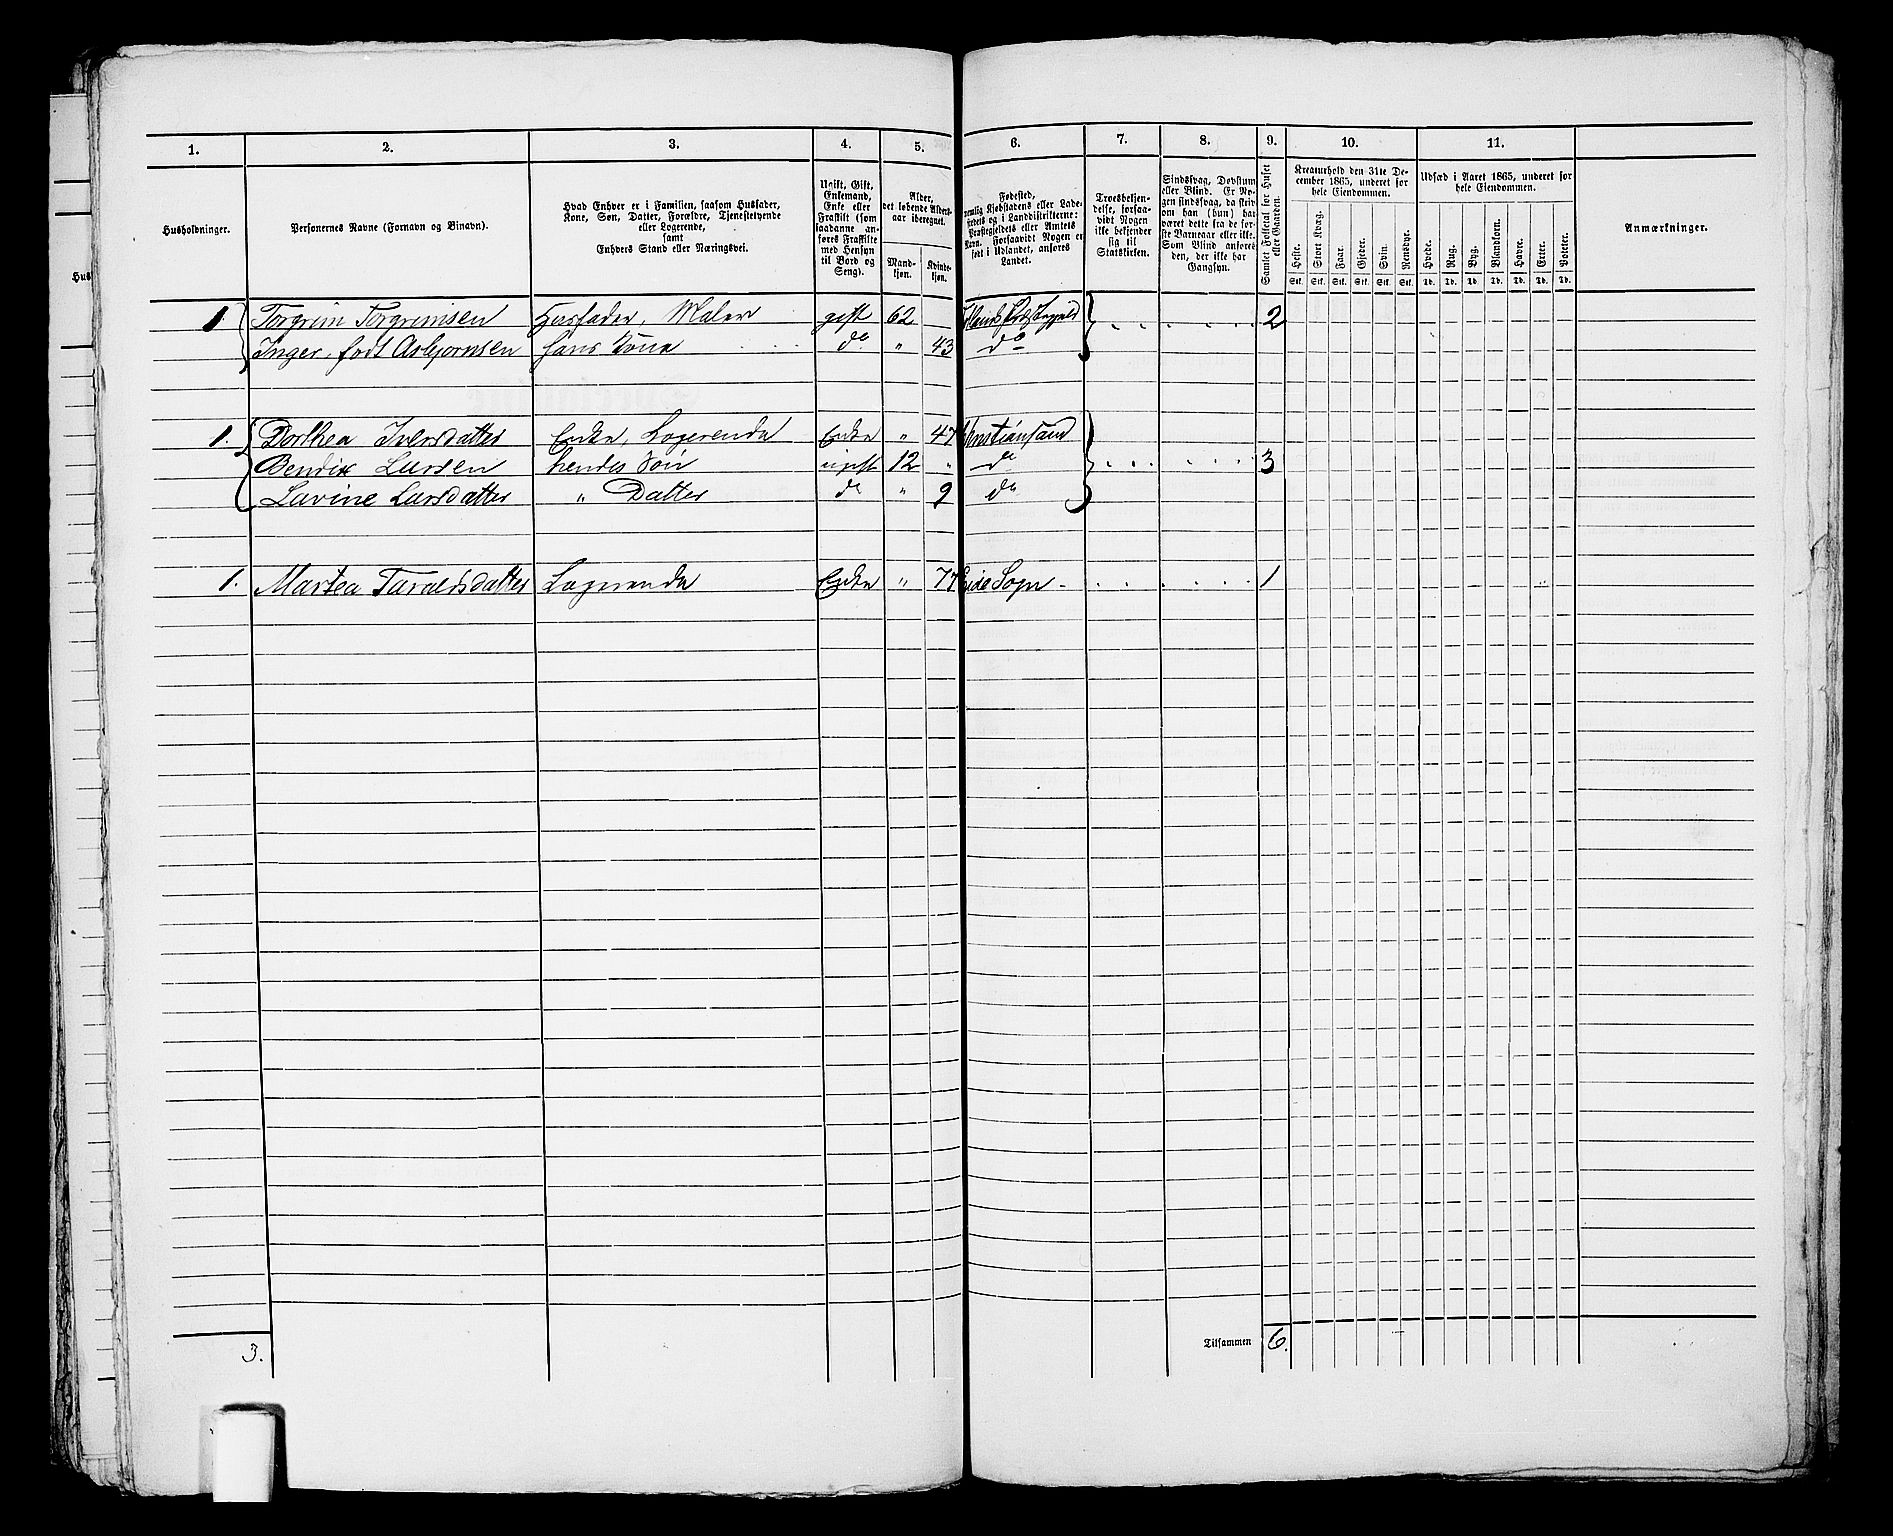 1. 2. 3. 4. 5. 6. 7. 8. 9. 10. 11.
Husholdninger.
Personernes Navne (Fornavn og Binavn).
Hvad Enhver er i Familien, saasom Husfader,
Kone, Søn, Datter, Forældre, Tjenestetyende
eller Logerende,
samt
Enhvers Stand eller Næringsvei.
Ugift, Gift,
Enkemand,
Enke eller
Fraskilt (som
saadanne an-
føres Fraskilte
med Hensyn
til Bord og
Seng).
Alder,
det løbende Alders-
aar iberegnet.
Mand-
kjøn.
Kvinde-
kjøn.
Fødested,
nemlig Kjøbstadens eller Lade-
stedets og i Landdistrikterne:
Præstegjeldets eller Amtets
Navn. Forsaavidt Nogen er
født i Udlandet, anføres
Landet.
Troesbekjen-
delse, forsaa-
vidt Nogen
ikke bekjender
sig til
Statskirken.
Sindssvag, Døvstum
eller Blind. Er No-
gen sindssvag, da skriv
om han (hun) har
været dette fra de før-
ste Barneaar eller ikke.
Som Blind anføres
den, der ikke har
Gangsyn.
Samlet Folketal for Huset
eller Gaarden.
Kreaturhold den 31te De-
cember 1865, underet for
hele Eiendommen.
Heste. Stort Kvæg. Faar. Gjeder. Svin. Rensdyr.
Stk. Stk. Stk. Stk. Stk. Stk.
Udsæd i Aaret 1865, underet for
hele Eiendommen.
Hvede. Rug. Byg. Blandkorn. Havre. Erter. Poteter.
Td. Td. Td. Td. Td. Td. Td.
Anmærkninger.
1. Torgrim Torgrimsen Husfader, Maler gift 62 2
Inger, født Asbjørnsen hans Kone do " 43 do
1. Dorthea Iversdatter Enke, Logerende Enke " 47 Christiansand
Bendix Larsen hendes Søn ugift 12 " do 3
Lavine Larsdatter " Datter do " 9 do
1. Martea Taraldsdatter Logerende Enke " 77 Eide Sogn 1
3. Tilsammen 6.